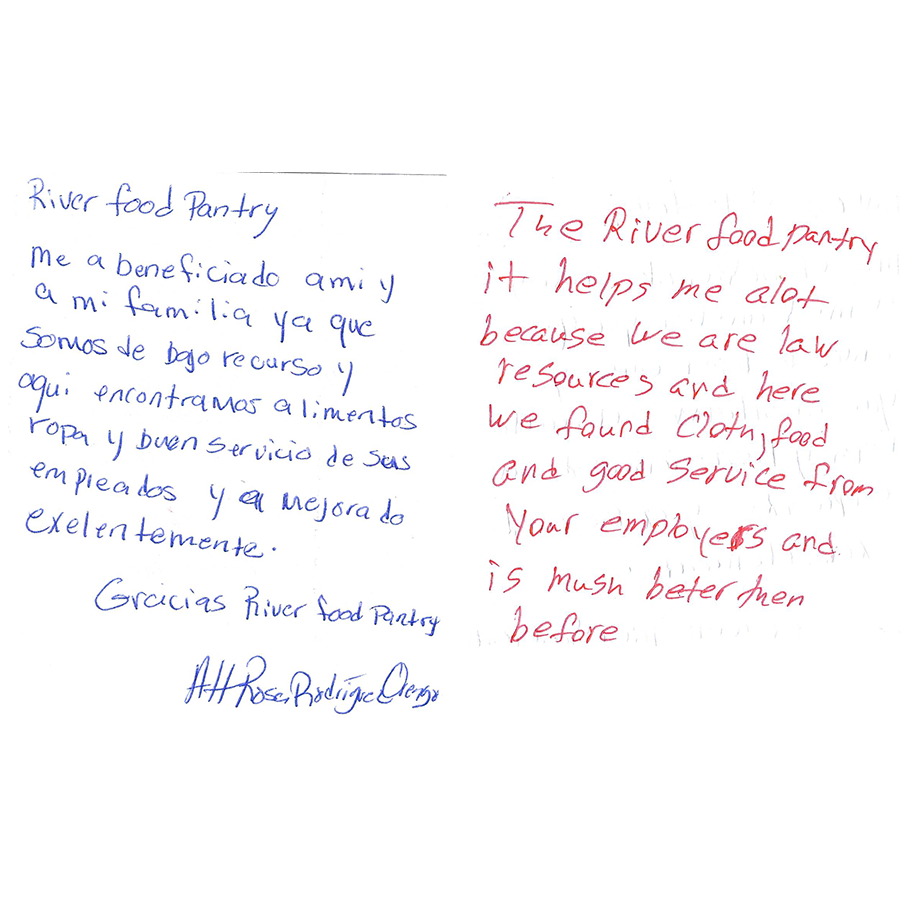 River food Pantry
me a beneficiado ami y
a mi familia ya que
somos de bajo recurso y
aqui encontramos alimentos
ropa y buen servicio de sus
empleados y a mejorado
exelentemente.
Gracias River food Pantry
Att Rosa Rodrígue
The River food pantry
it helps me alot
because we are law
resources and here
we found Cloth, food
and good Service from
Your employers and
is mush beter then
before